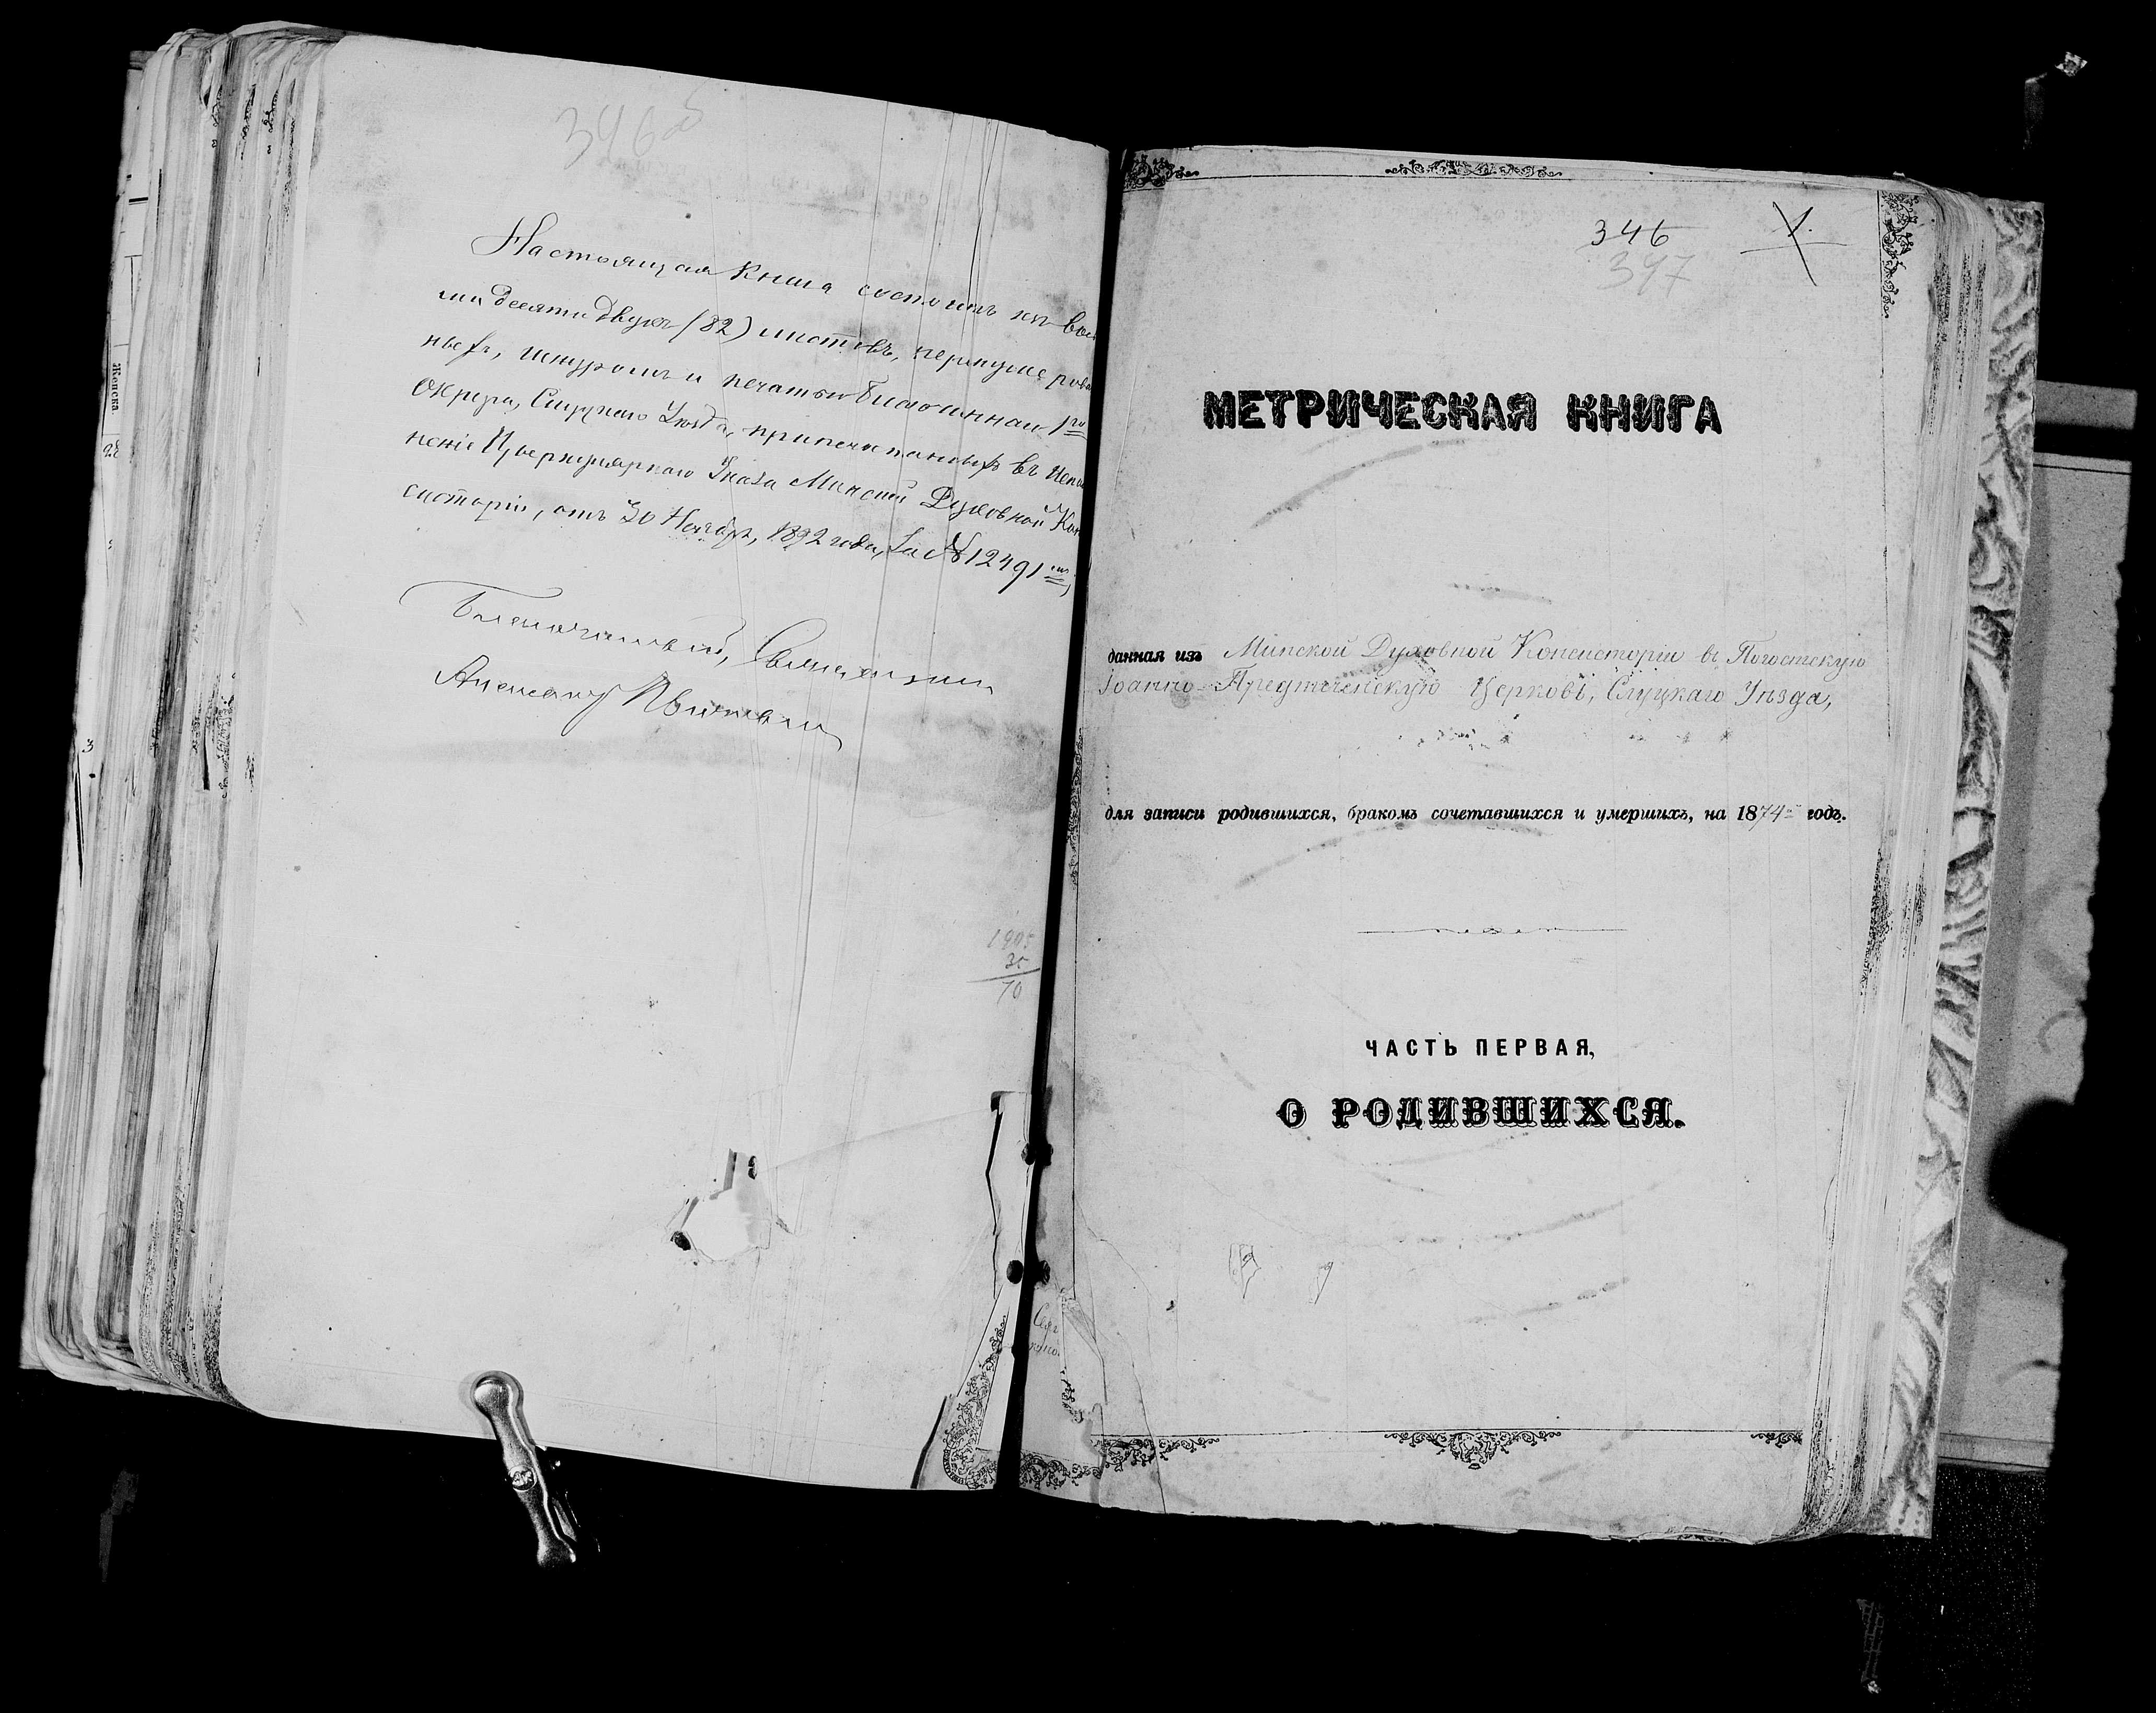 346 об
Настоящая книга состоитъ изъ вось
ми десяти двухъ (82) листовъ, перенумерован
ныхъ, шнуромъ и печатью Благочиннаго 1го
Округа, Слуцкаго Уѣзда, припечатанныхъ въ Испол
неніе Циркулярнаго Указа Минской Духовной Кон
систоріи, отъ 30 Ноября, 1892 года, за № 12491мъ,
Благочинный, Священникъ
1905
35
70
346 1.
347
МЕТРИЧЕСКАЯ КНИГА
данная изъ Минской Духовной Консисторіи въ Погостскую
Іоанно-Предтеченскую Церковь, Слуцкаго Уѣзда,
для записи родившихся, бракомъ сочетавшихся и умершихъ, на 1874 годъ.
ЧАСТЬ ПЕРВАЯ,
О РОДИВШИХСЯ.
Женска
3